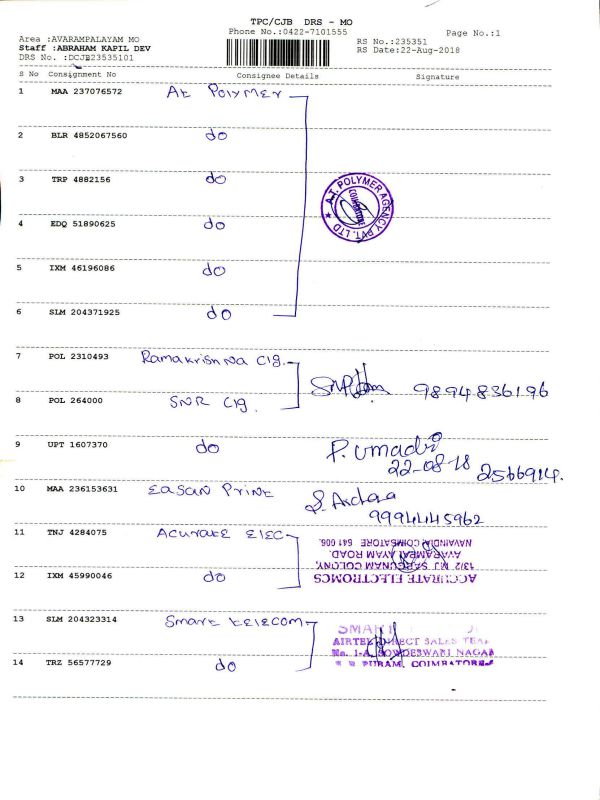 TPC/CJB DRS - MO
Phone No.:0422-7101555
Page No.:1
Area :AVARAMPALAYAM MO
Staff :ABRAHAM KAPIL DEV
DRS No. :DCJB23535101
RS No.:235351
RS Date:22-Aug-2018
S No Consignment No Consignee Details Signature
1 MAA 237076572 At Polymer
2 BLR 4852067560 do
3 TRP 4882156 do
A.T. POLYMER AGENCY PVT. LTD
COIMBATORE
4 EDQ 51890625 do
5 IXM 46196086 do
6 SLM 204371925 do
7 POL 2310493 Ramakrishna Clg.
9894836196
8 POL 264000 SNR Clg.
9 UPT 1607370 do P. Umadevi
22-08-18 2566914.
10 MAA 236153631 Easan Print
9994445962
11 TNJ 4284075 Acurate Elec
12 IXM 45990046 do
ACCURATE ELECTROMCS
13/2 MJ SARGUNAM COLONY,
AVARAMPALAYAM ROAD,
NAVAINDIA COIMBATORE 641 006.
13 SLM 204323314 Smart telecom
SMART
AIRTEL DIRECT SALES TEAM
No. 1-A, SOWDESWARI NAGAR
PURAM, COIMBATORE
14 TRZ 56577729 do